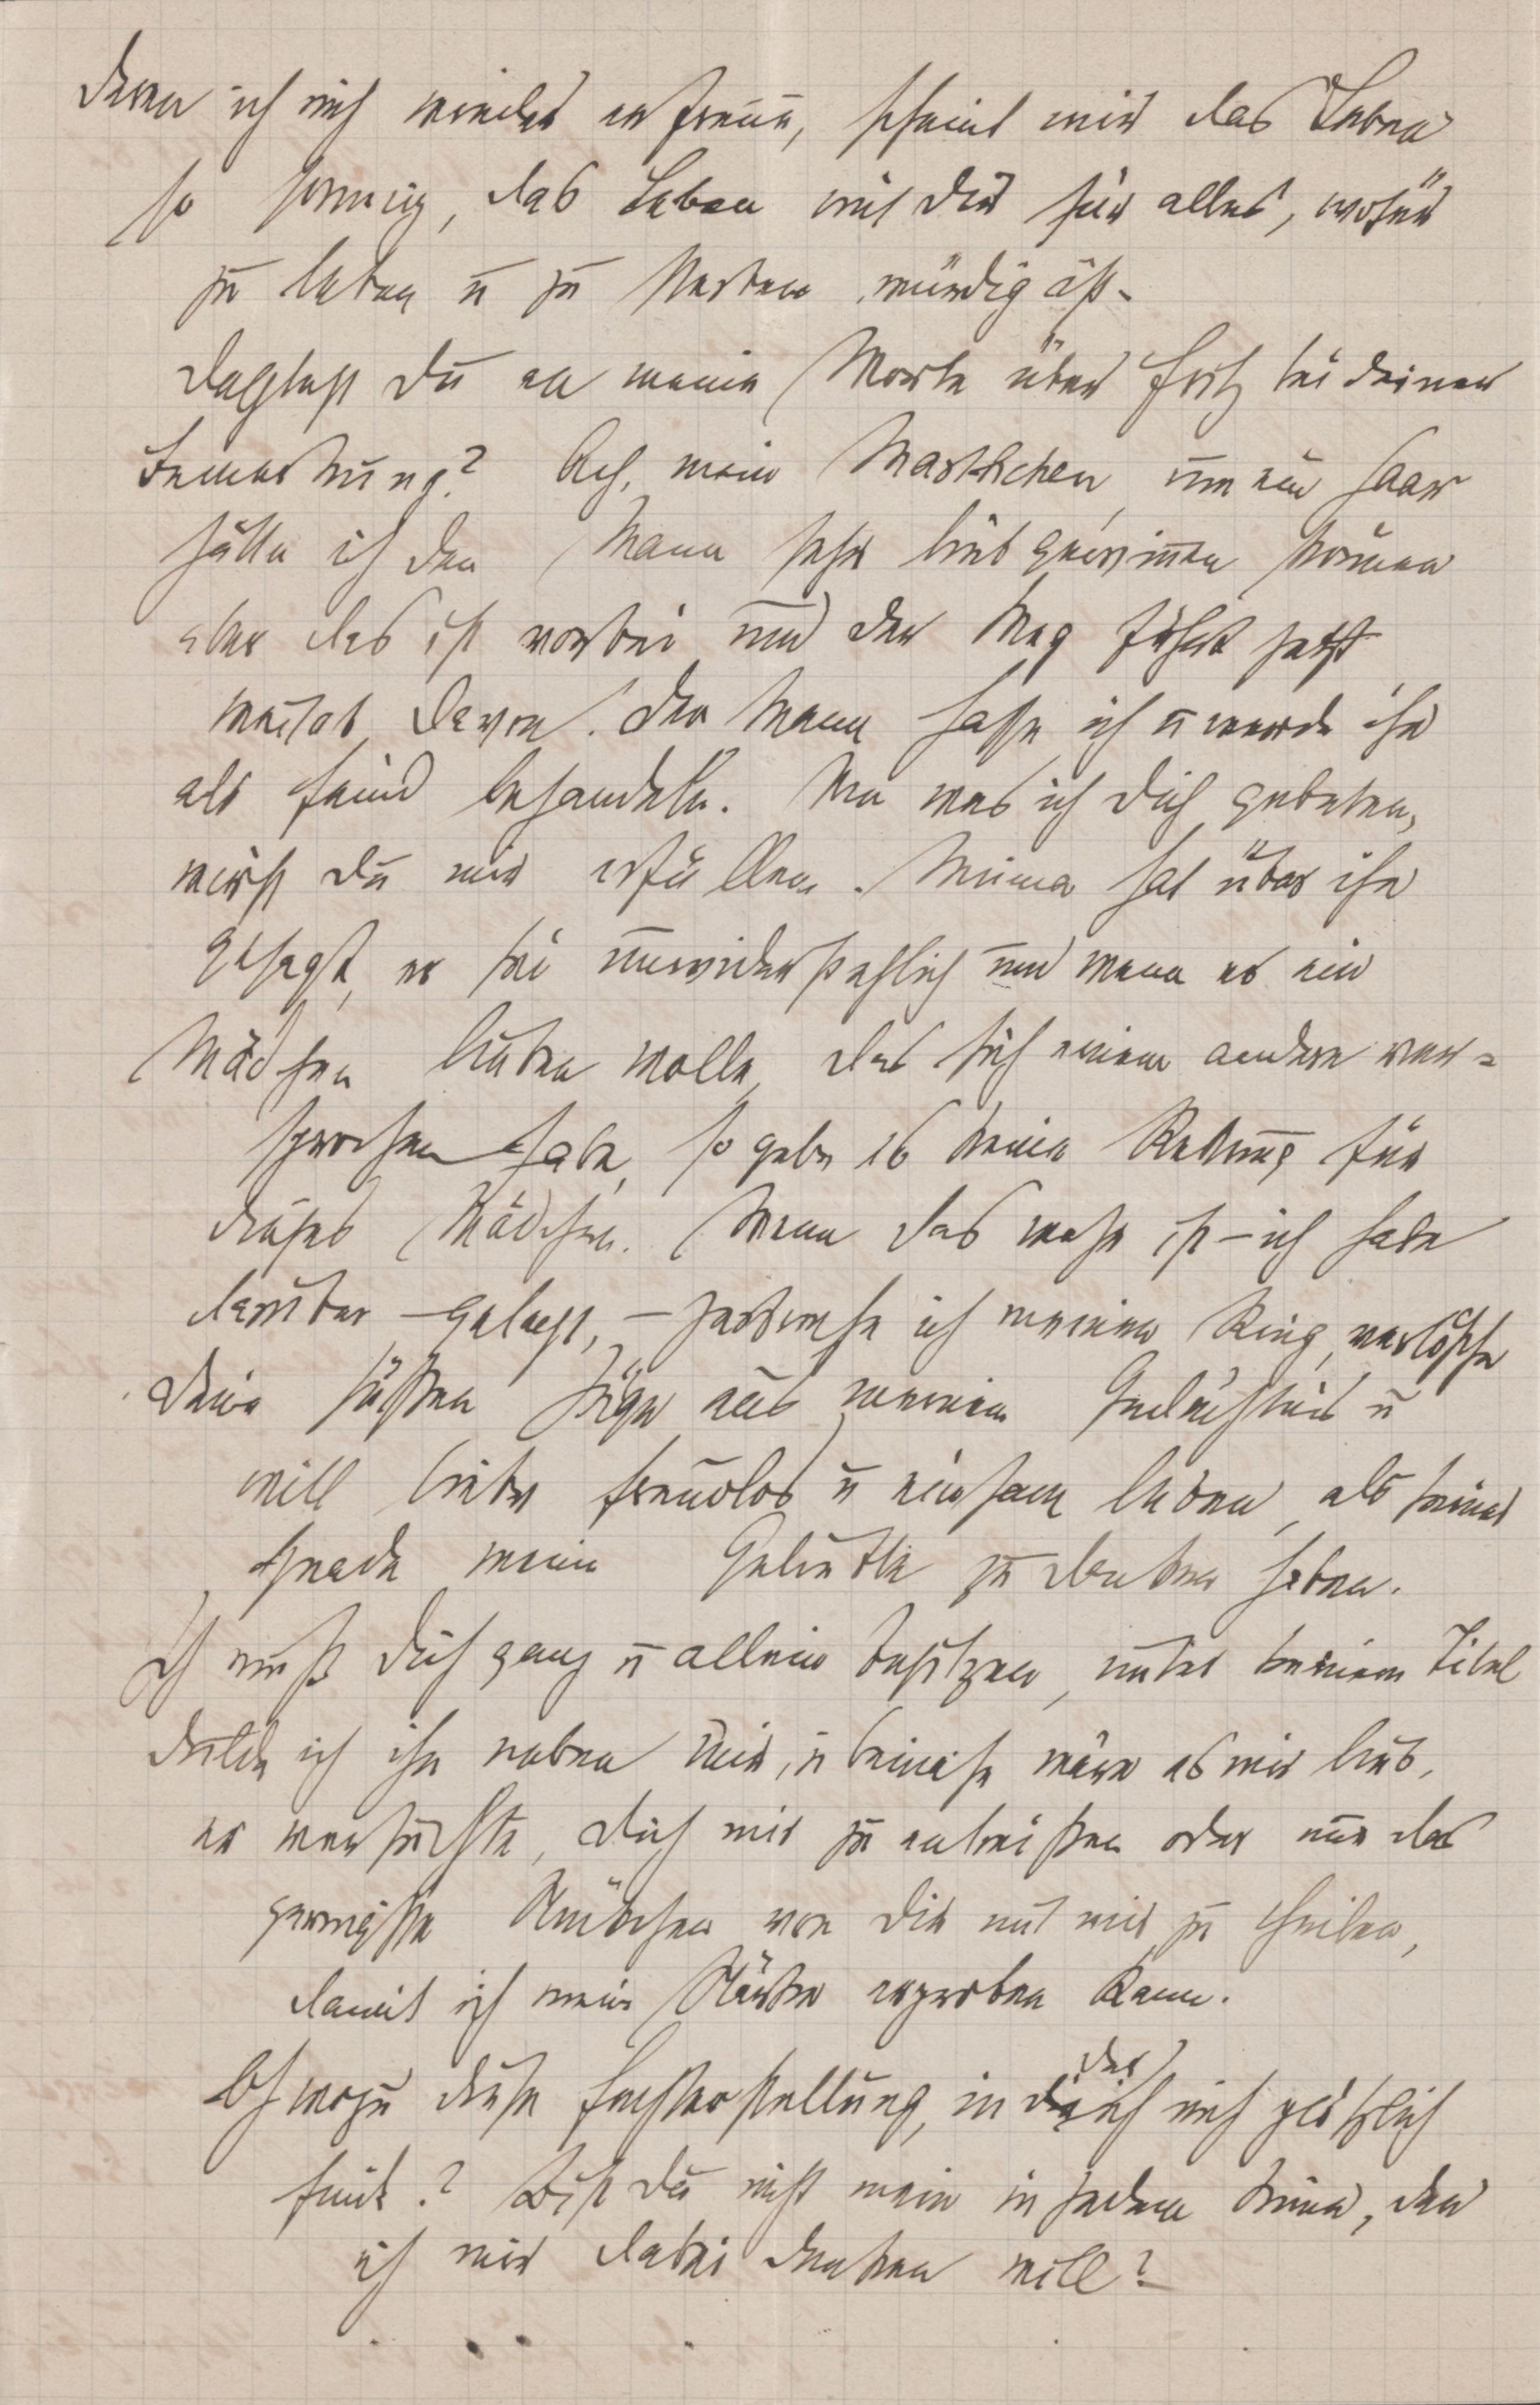 deren ich mich wieder erfreue, scheint mir das Leben
so sonnig, das Leben mit Dir für alles, wofür
zu leben u zu sterben würdig ist.
Dachtest Du an meine Worte über Fritz bei Deiner
Bemerkung? Ach, mein Marthchen, um ein Haar
hätte ich den Mann sehr lieb gewinnen können
aber das ist vorbei und der Weg führt jetzt
weitab davon. Den Mann hasse ich u werde ihn
als Feind behandeln. Um was ich Dich gebeten,
wirst Du mir erfüllen. Minna hat über ihn
gesagt, er sei unwiderstehlich und wenn er ein
Mädchen lieben wolle, das sich einem andern ver=
sprochen habe, so gebe es keine Rettung für
dieses Mädchen. Wenn das wahr ist – ich habe
darüber – gelacht, – zerbreche ich meinen Ring, verlösche
Deine süßen Züge aus meinem Gedächtnis u
will lieber freudlos u einsam leben, als seiner
Gnade meine Geliebte zu danken haben.
Ich muß Dich ganz u allein besitzen, unter keinem Titel
dulde ich ihn neben mir, u beinahe wäre es mir lieb,
er versuchte, Dich mir zu entreißen oder nur das
geringste Stückchen von Dir mit mir zu theilen,
damit ich meine Stärke erproben kann.
Ach wozu diese Fechterstellung, in der ich mich plötzlich
finde? Bist Du nicht mein in jedem Sinne, den
ich mir dabei denken will?